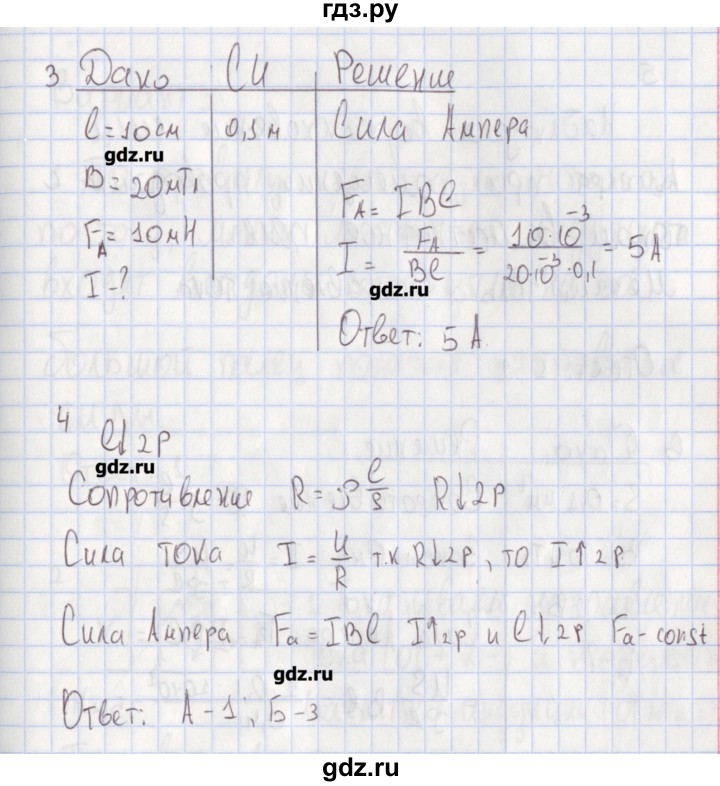 гдз.ру
3 Дано СИ Решение
l=10см 0,1м Сила Ампера
gdz.ru
B=20мТл
F_A=10мН
I-?
F_A=IBl
I = F_A/Bl = 10·10⁻³/20·10⁻³·0,1 = 5 А
gdz.ru
Ответ: 5 А.
4
l↓2р
gdz.ru
Сопротивление R=ρ l/S R↓2р
Сила тока I = U/R т.к R↓2р, то I↑2р
Сила Ампера Fa=IBl I↑2р и l↓2р Fa-const
gdz.ru
Ответ: А-1; Б-3
gdz.ru